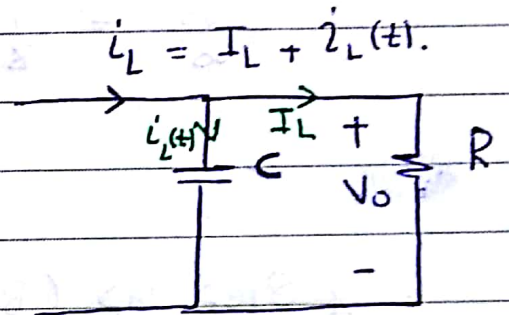 i_L = I_L + i_L(t).
i_L(t) I_L +
C V_0 R
-